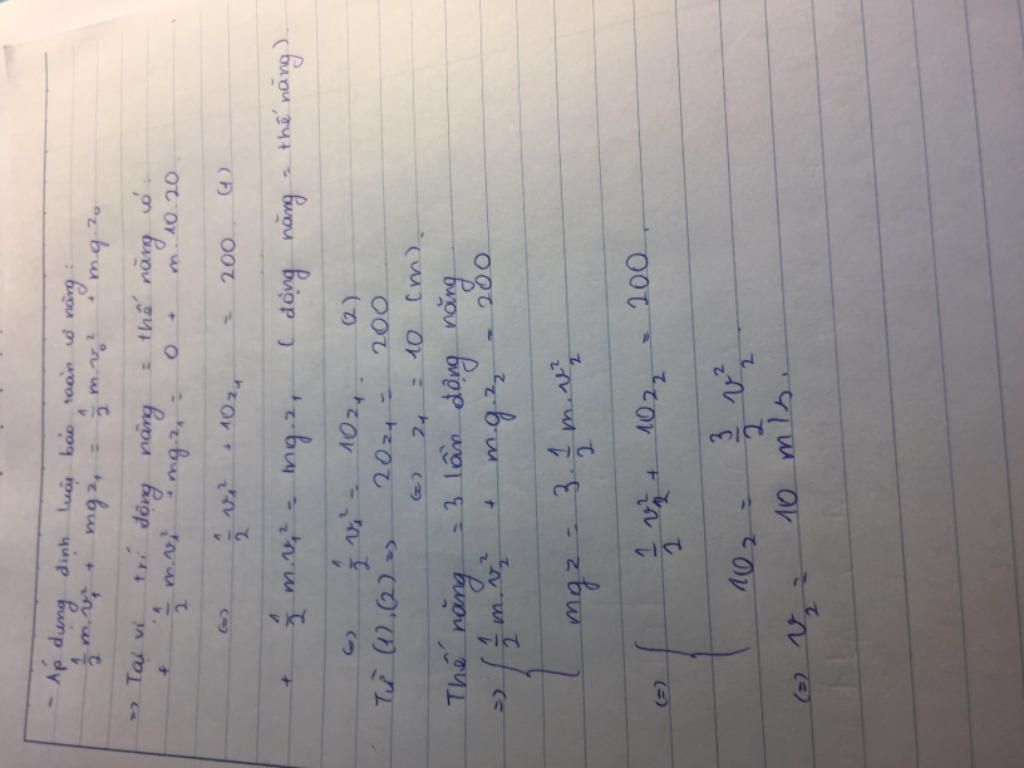 - Áp dụng định luật bảo toàn cơ năng:
1/2 m.v₁² + mgz₁ = 1/2 m.v₀² + mg.z₀
=> Tại vị trí động năng = thế năng có:
+ 1/2 m.v₁² + mg.z₁ = 0 + m.10.20
(=) 1/2 v₁² + 10z₁ = 200 (1)
+ 1/2 m.v₁² = mg.z₁ (động năng = thế năng)
(=) 1/2 v₁² = 10z₁. (2)
Từ (1), (2) => 20z₁ = 200
(=) z₁ = 10 (m).
Thế năng = 3 lần động năng
=> { 1/2 m.v₂² + mg.z₂ = 200
mgz = 3.1/2 m.v₂²
(=) { 1/2 v₂² + 10z₂ = 200.
10z = 3/2 v₂²
(=) v₂ = 10 m/s.